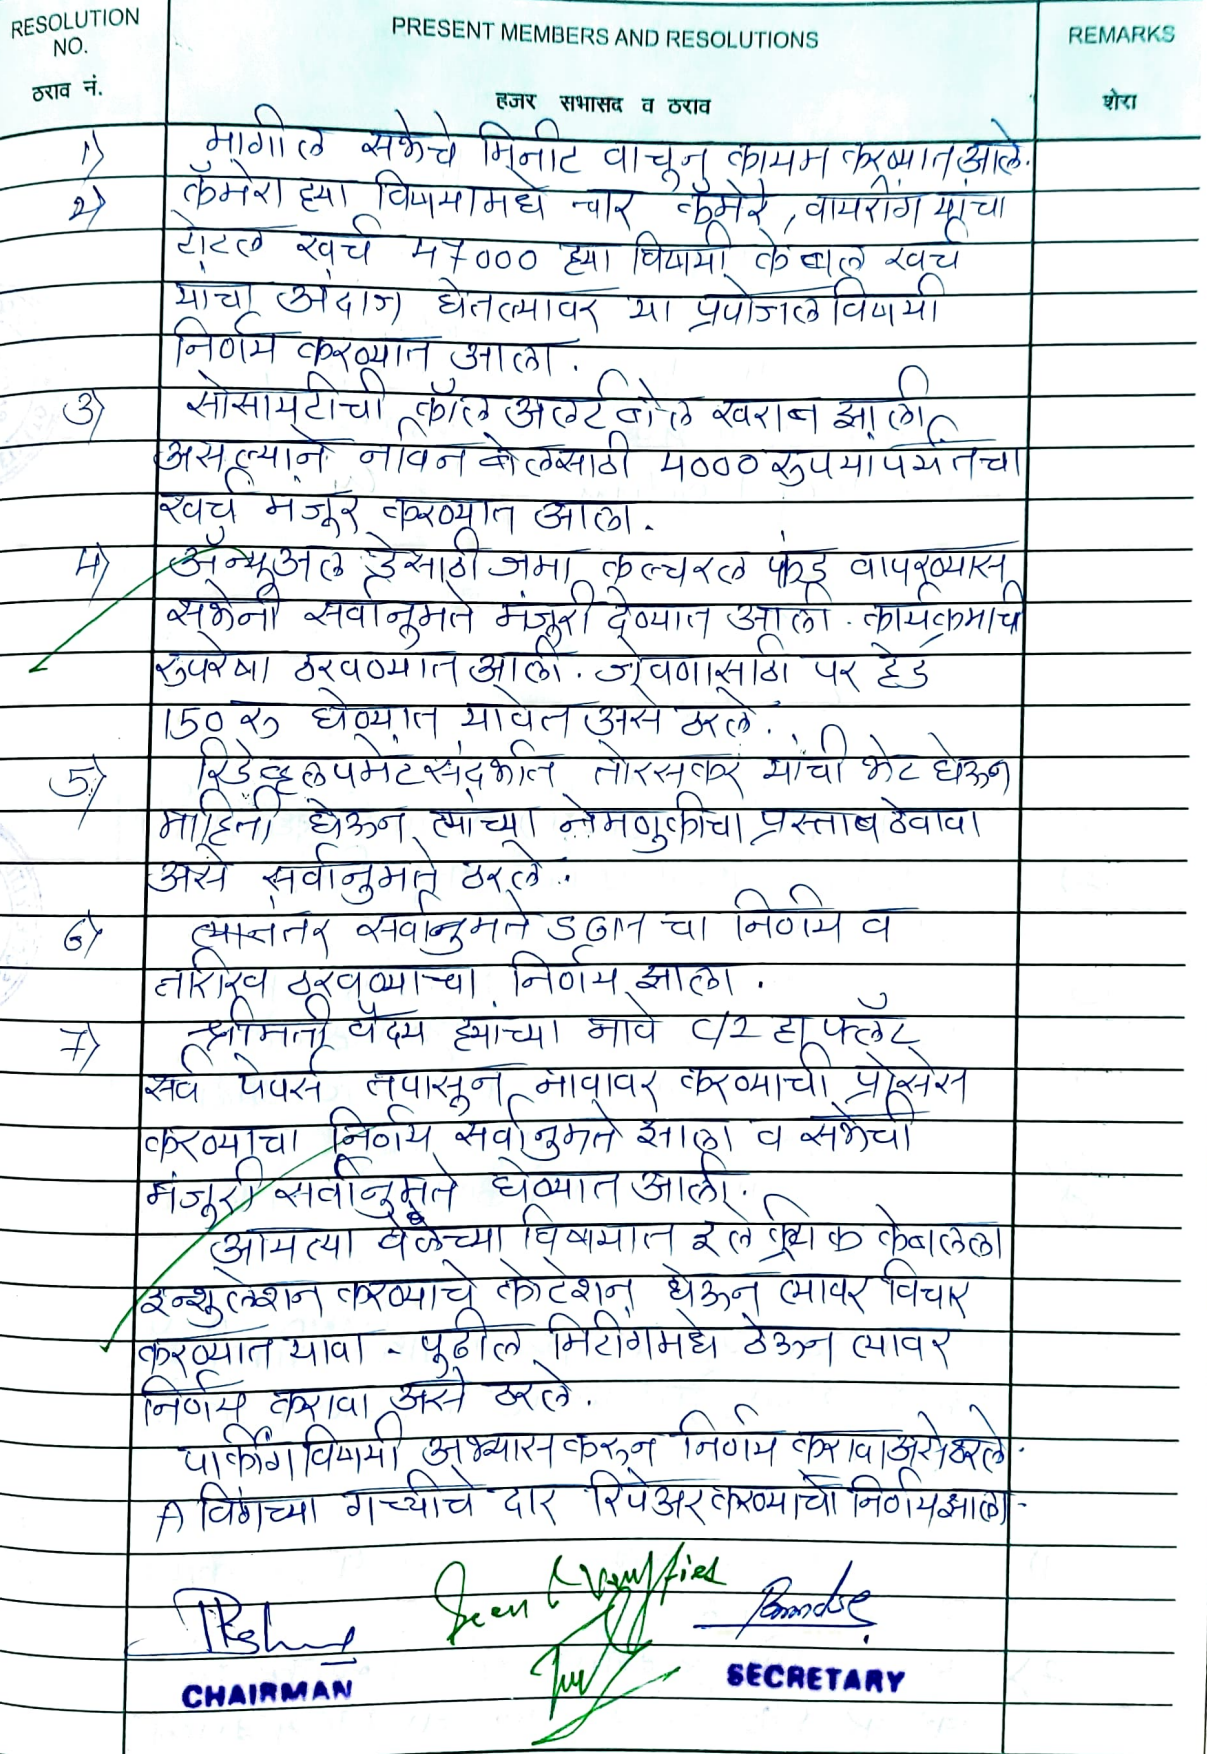 RESOLUTION NO. PRESENT MEMBERS AND RESOLUTIONS REMARKS
ठराव नं. हजर सभासद व ठराव शेरा
1) मागील सभेचे मिनीट वाचून कायम करण्यात आले.
2) कॅमेरा ह्या विषयामधे चार कॅमेरे, वायरींग यांचा
टोटल खर्च 47000 ह्या विषयी केबल खर्च
याचा अंदाज घेतल्यावर या प्रपोजल विषयी
निर्णय करण्यात आला.
3) सोसायटीची कॉल अलर्ट बेल खराब झाली
असल्याने नविन बेलसाठी 4000 रुपयापर्यंतचा
खर्च मंजूर करण्यात आला.
4) ॲन्युअल डेसाठी जमा कल्चरल फंड वापरण्यास
सभेनी सर्वानुमते मंजूरी देण्यात आली. कार्यक्रमाची
रुपरेषा ठरवण्यात आली. जेवणासाठी पर हेड
150 रु घेण्यात यावेत असे ठरले.
5) रिडेव्हलपमेंटसंदर्भात तोरसकर यांची भेट घेऊन
माहिती घेऊन त्यांच्या नेमणुकीचा प्रस्ताव ठेवावा
असे सर्वानुमते ठरले.
6) त्यानंतर सर्वानुमते SGM चा निर्णय व
तारिख ठरवण्याचा निर्णय झाला.
7) श्रीमती वैदय ह्यांच्या नावे C/2 हा फ्लॅट
सर्व पेपर्स तपासून नावावर करण्याची प्रोसेस
करण्याचा निर्णय सर्वानुमते झाला व सभेची
मंजूरी सर्वानुमते घेण्यात आली.
आमत्या वेळेच्या विषयात इलेक्ट्रिक केबलला
इन्शुलेशन करण्याचे कोटेशन घेऊन त्यावर विचार
करण्यात यावा - पुढील मिटींगमधे ठेऊन त्यावर
निर्णय करावा असे ठरले.
पार्कींगविषयी अभ्यास करुन निर्णय करावा असे ठरले.
A विंगच्या गच्चीचे दार रिपेअर करण्याचा निर्णय झाला.
Seen & Verified
CHAIRMAN SECRETARY